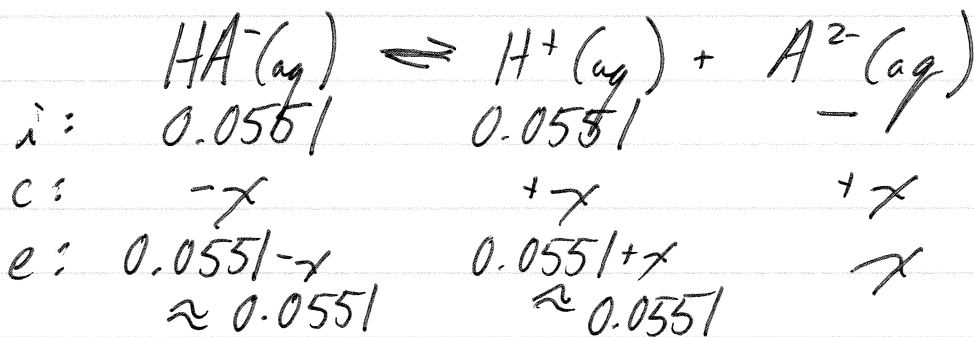 HA⁻(aq) ⇌ H⁺(aq) + A²⁻(aq)
i: 0.0551 0.0551 —
c: -x +x +x
e: 0.0551-x 0.0551+x x
≈ 0.0551 ≈ 0.0551